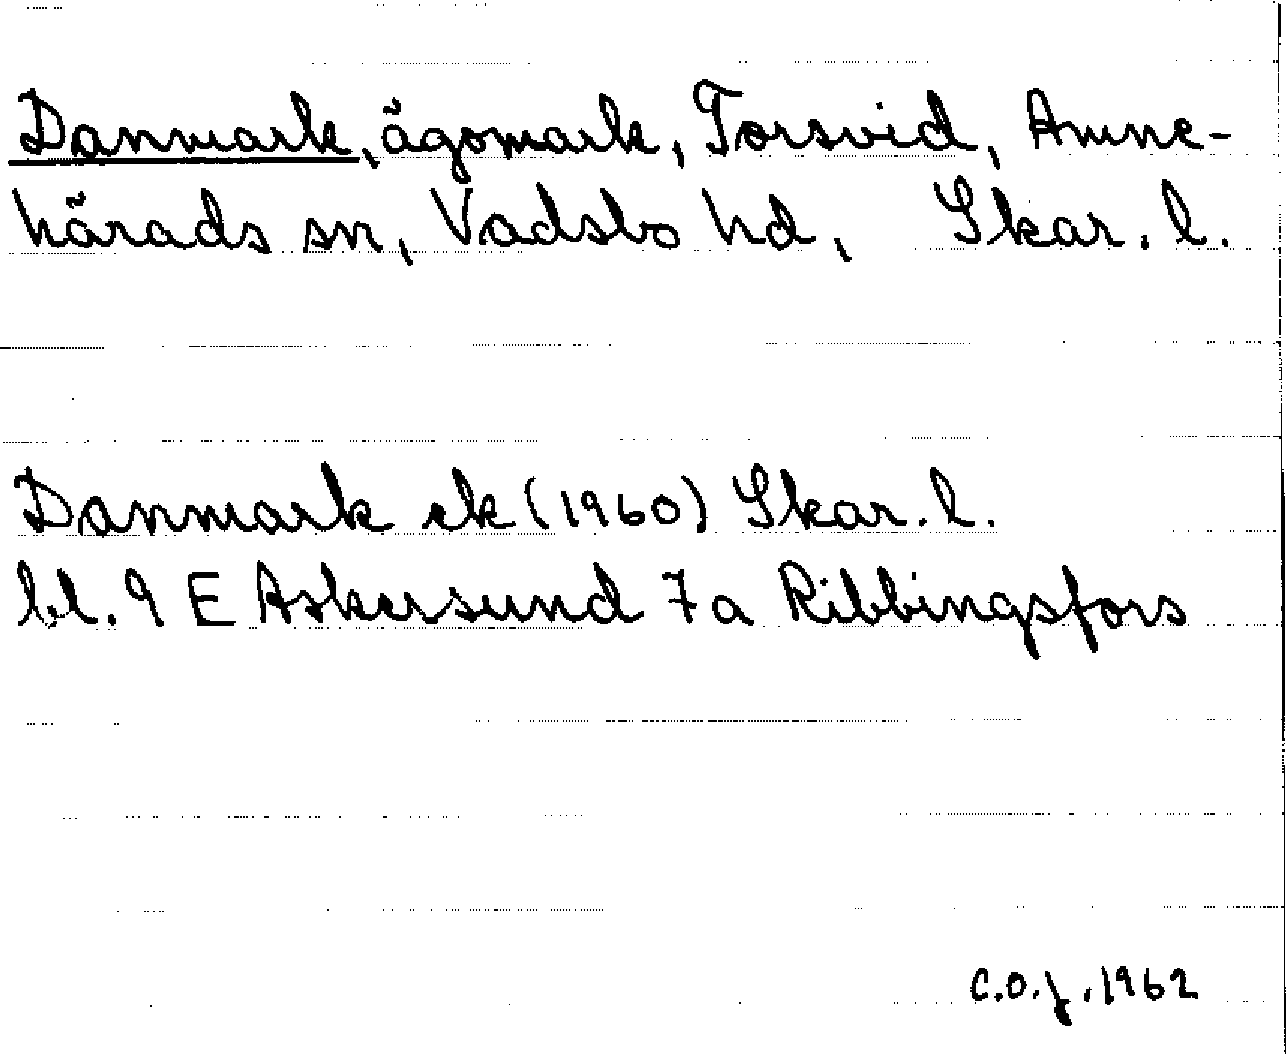 Danmark, ägomark, Torsvid, Amne-
härads sn, Vadsbo hd, Skar. l.
Danmark ek (1960) Skar. l.
bl. 9 E Askersund 7a Ribbingsfors
C.O.J. 1962